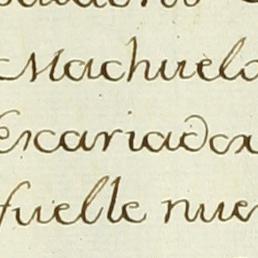 Machuelo
escariador
fuelle nue